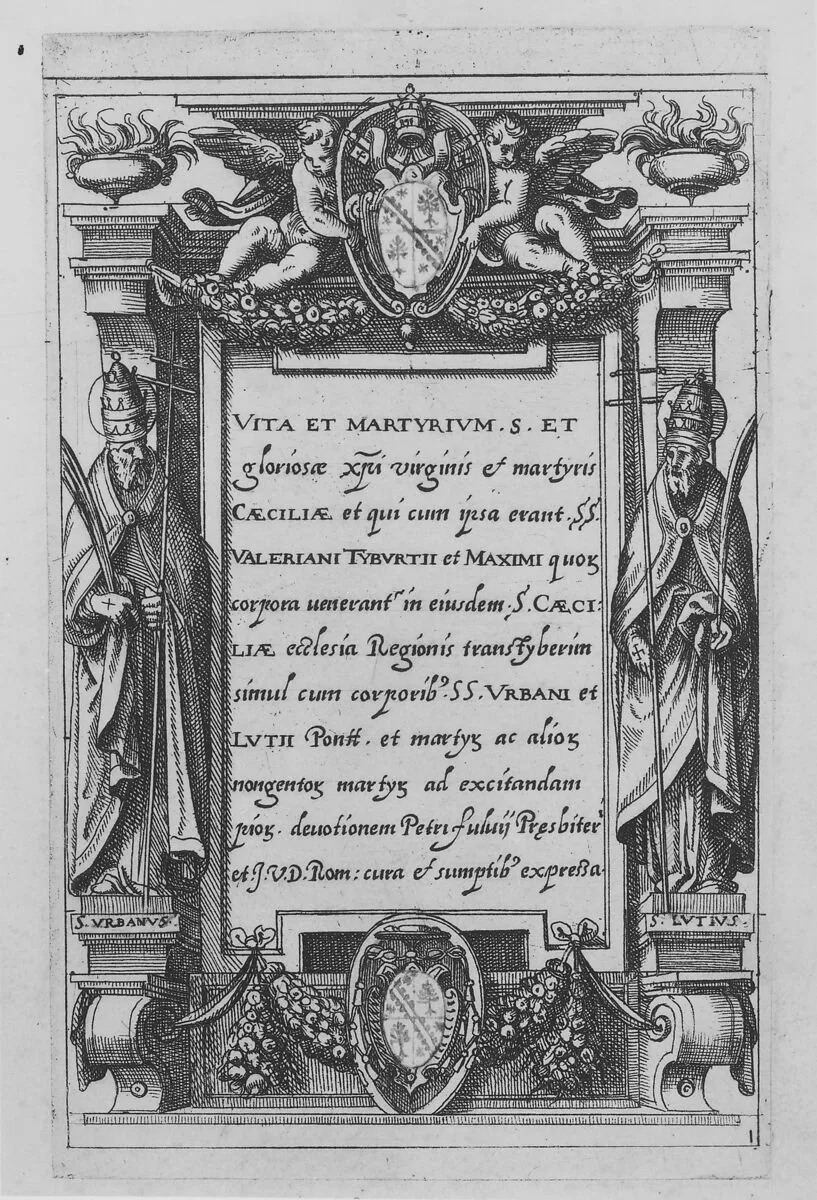 VITA ET MARTYRIVM . S . ET
gloriosæ xp̃i virginis et martyris
CÆCILIÆ et qui cum ipsa erant . SS.
VALERIANI TYBVRTII et MAXIMI quoꝝ
corpora uenerant᷑ in eiusdem . S . CÆCI:
LIÆ ecclesia Regionis transtyberim
simul cum corporibꝰ . SS . VRBANI et
LVTII Pontt . et martyꝝ ac alioꝝ
nongentoꝝ martyꝝ ad excitandam
pioꝝ . deuotionem Petri fuluij Pręsbiter᷑
et J.V.D. Rom: cura et sumptibꝰ expressa .
S. VRBANVS.
S. LVTIVS.
1